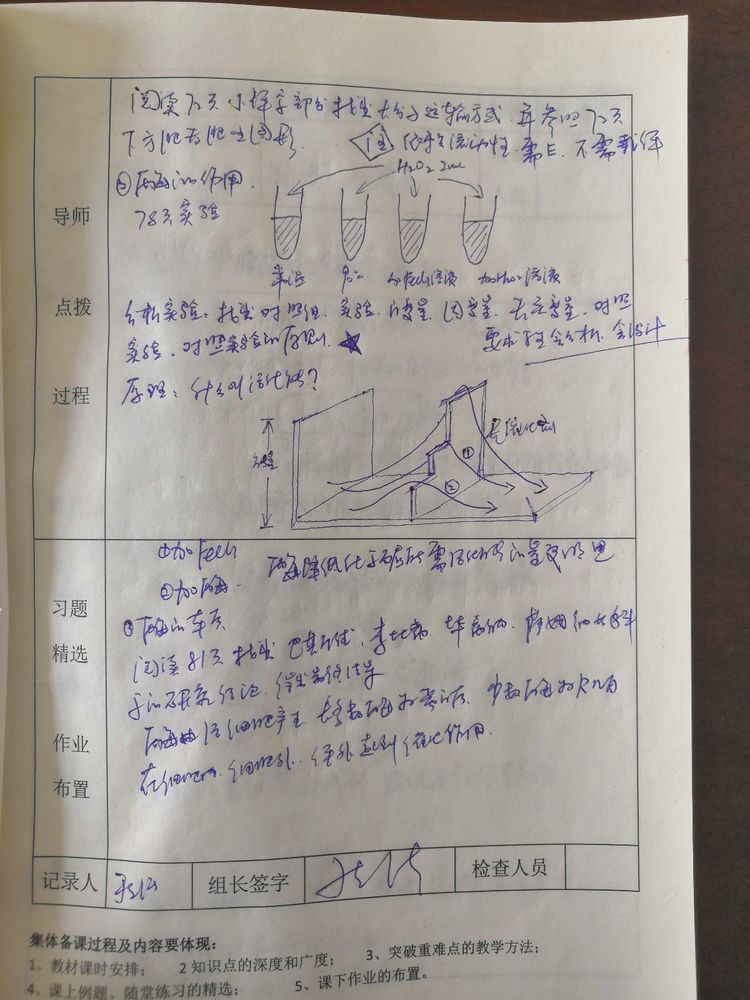 阅读72页小样本部分找出大分子运输方式,再参照72页
下方胞吞胞吐图形. 注 依赖流动性 需E. 不需载体
②酶的作用. H2O2 2ml
78页实验
常温 90℃ 加FeCl3溶液 加 溶液
导师
点拨
过程
分析实验:找出对照组.实验.自变量.因变量.无关变量.对照
实验.对照实验的原则. ★ 要求学生会分析.会设计
原理:什么叫活化能?
能量 无催化剂
① ②
①加FeCl3
②加酶. 酶降低化学反应所需活化能的量更明显
习题
精选
作业
布置
③酶的本质
阅读81页找出巴斯德.李比希.毕希纳.萨姆纳
的探究结论.得出最终结果
酶由活细胞产生.大多数酶为蛋白质.少数酶为RNA
在细胞内.细胞外.体外起到催化作用.
记录人 组长签字 检查人员
集体备课过程及内容要体现:
1、教材课时安排; 2 知识点的深度和广度; 3、突破重难点的教学方法;
4、课上例题、随堂练习的精选; 5、课下作业的布置。